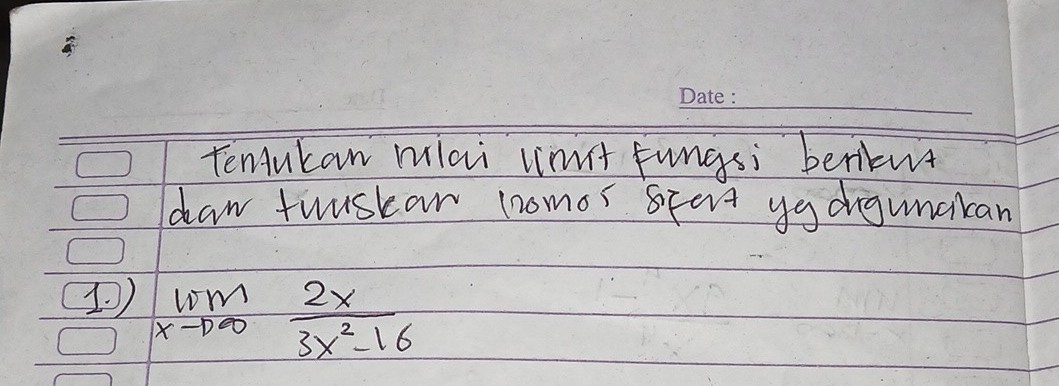 Date :
Tentukan nilai limit fungsi berikut
dan tuliskan nomor sifat yg digunakan
1.) lim 2x
x→∞ 3x²-16